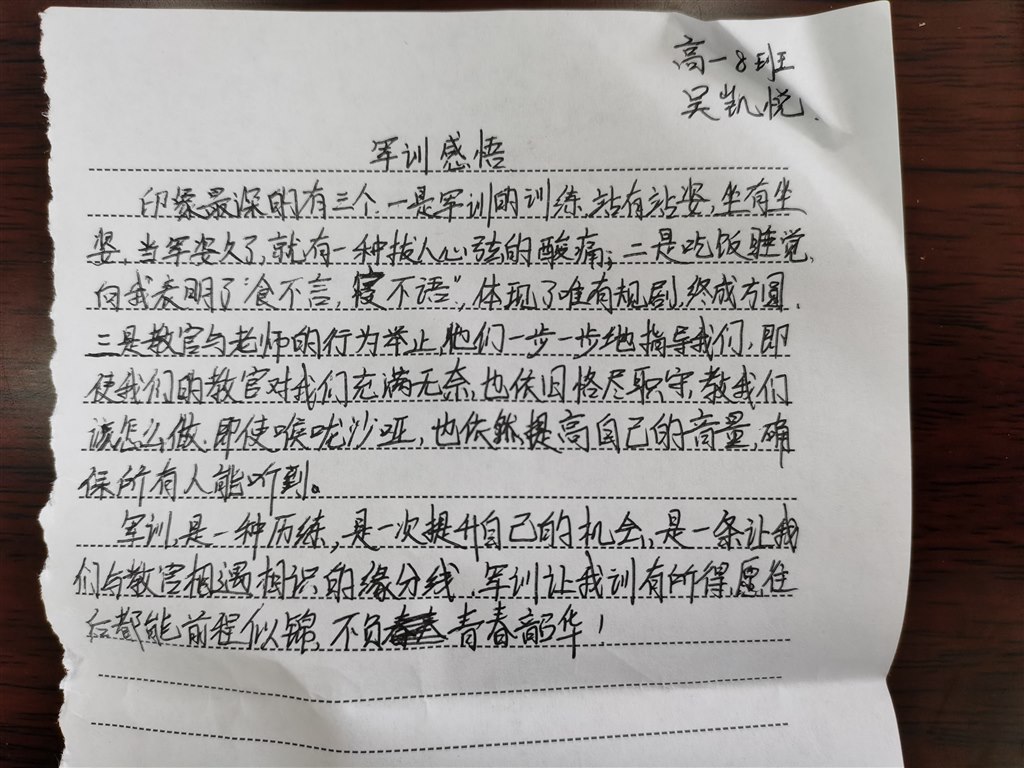 高一8班
吴凯悦.
军训感悟
印象最深的有三个.一是军训的训练,站有站姿,坐有坐
姿,当军姿久了,就有一种拔人心弦的酸痛;二是吃饭睡觉,
向我表明了“食不言,寝不语”,体现了唯有规剧,终成方圆.
三是教官与老师的行为举止,他们一步一步地指导我们,即
使我们的教官对我们充满无奈,也依旧恪尽职守,教我们
该怎么做.即使喉咙沙哑,也依然提高自己的音量,确
保所有人能听到。
军训,是一种历练,是一次提升自己的机会,是一条让我
们与教官相遇相识的缘分线.军训让我训有所得,愿往
后都能前程似锦,不负青春韶华!